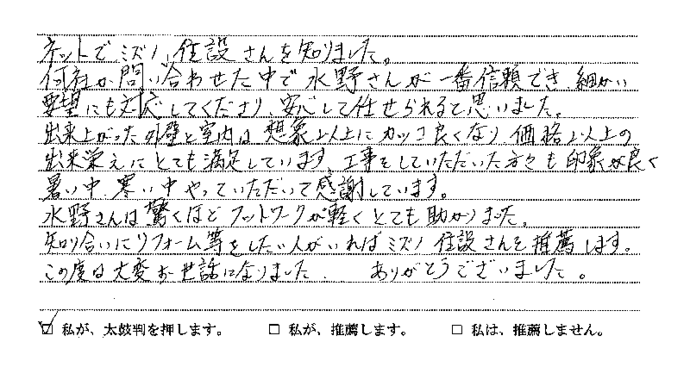 ネットでミズノ住設さんを知りました。
何社か問い合わせた中で水野さんが一番信頼でき、細かい
要望にも対応してくださり、安心して任せられると思いました。
出来上がった外壁と室内は想象以上にカッコ良くなり価格以上の
出来栄えにとても満足しています。工事をしていただいた方々も印象が良く
暑い中、寒い中やっていただいて感謝しています。
水野さんは驚くほどフットワークが軽くとても助かりました。
知り合いにリフォーム等をしたい人がいればミズノ住設さんを推薦します。
この度は大変お世話になりました。 ありがとうございました。
☑ 私が、太鼓判を押します。 □ 私が、推薦します。 □ 私は、推薦しません。